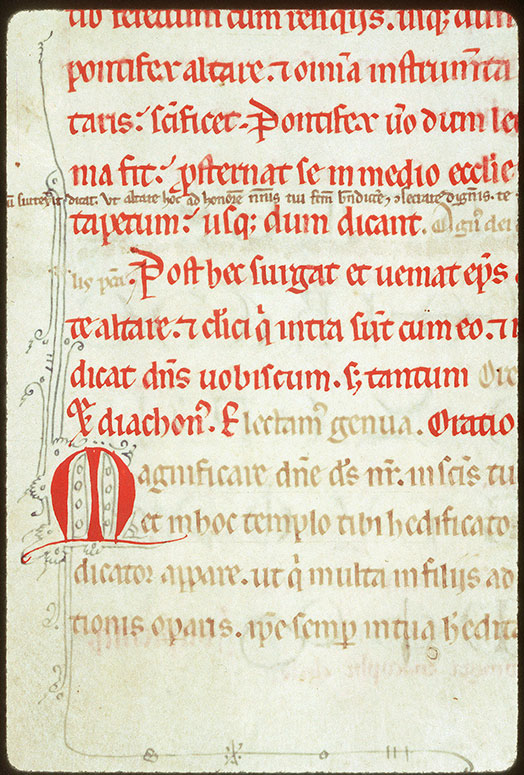 cum reliquijs. usq; dum
pontifex altare. ⁊ omnia instrum̄ta
taris. sc̄ificet. Pontifex ūo dum le
nia fit. p̄sternat se in medio eccl̄ie
dicat. Vt altare hoc ad honorē nōīs tui bn̄dicere ⁊ ̄secrare digneris. te
tapetum. usq; dum dicant. Agn̄ dei
Post hec surgat et ueniat ep̄s
te altare. ⁊ cl̄ici q̇ intra sūt cum eo. ⁊
dicat dn̄s uobiscum. s; tantum Ore
diachonꝰ. Flectamꝰ genua. Oratio
Magnificare dn̄e ds̄ nr̄. in scīs tu
et in hoc templo tibi hedificato
dicator appare. ut q̇ multa in filijs ad
tionis oparis. ip̄e semp in tua heredita